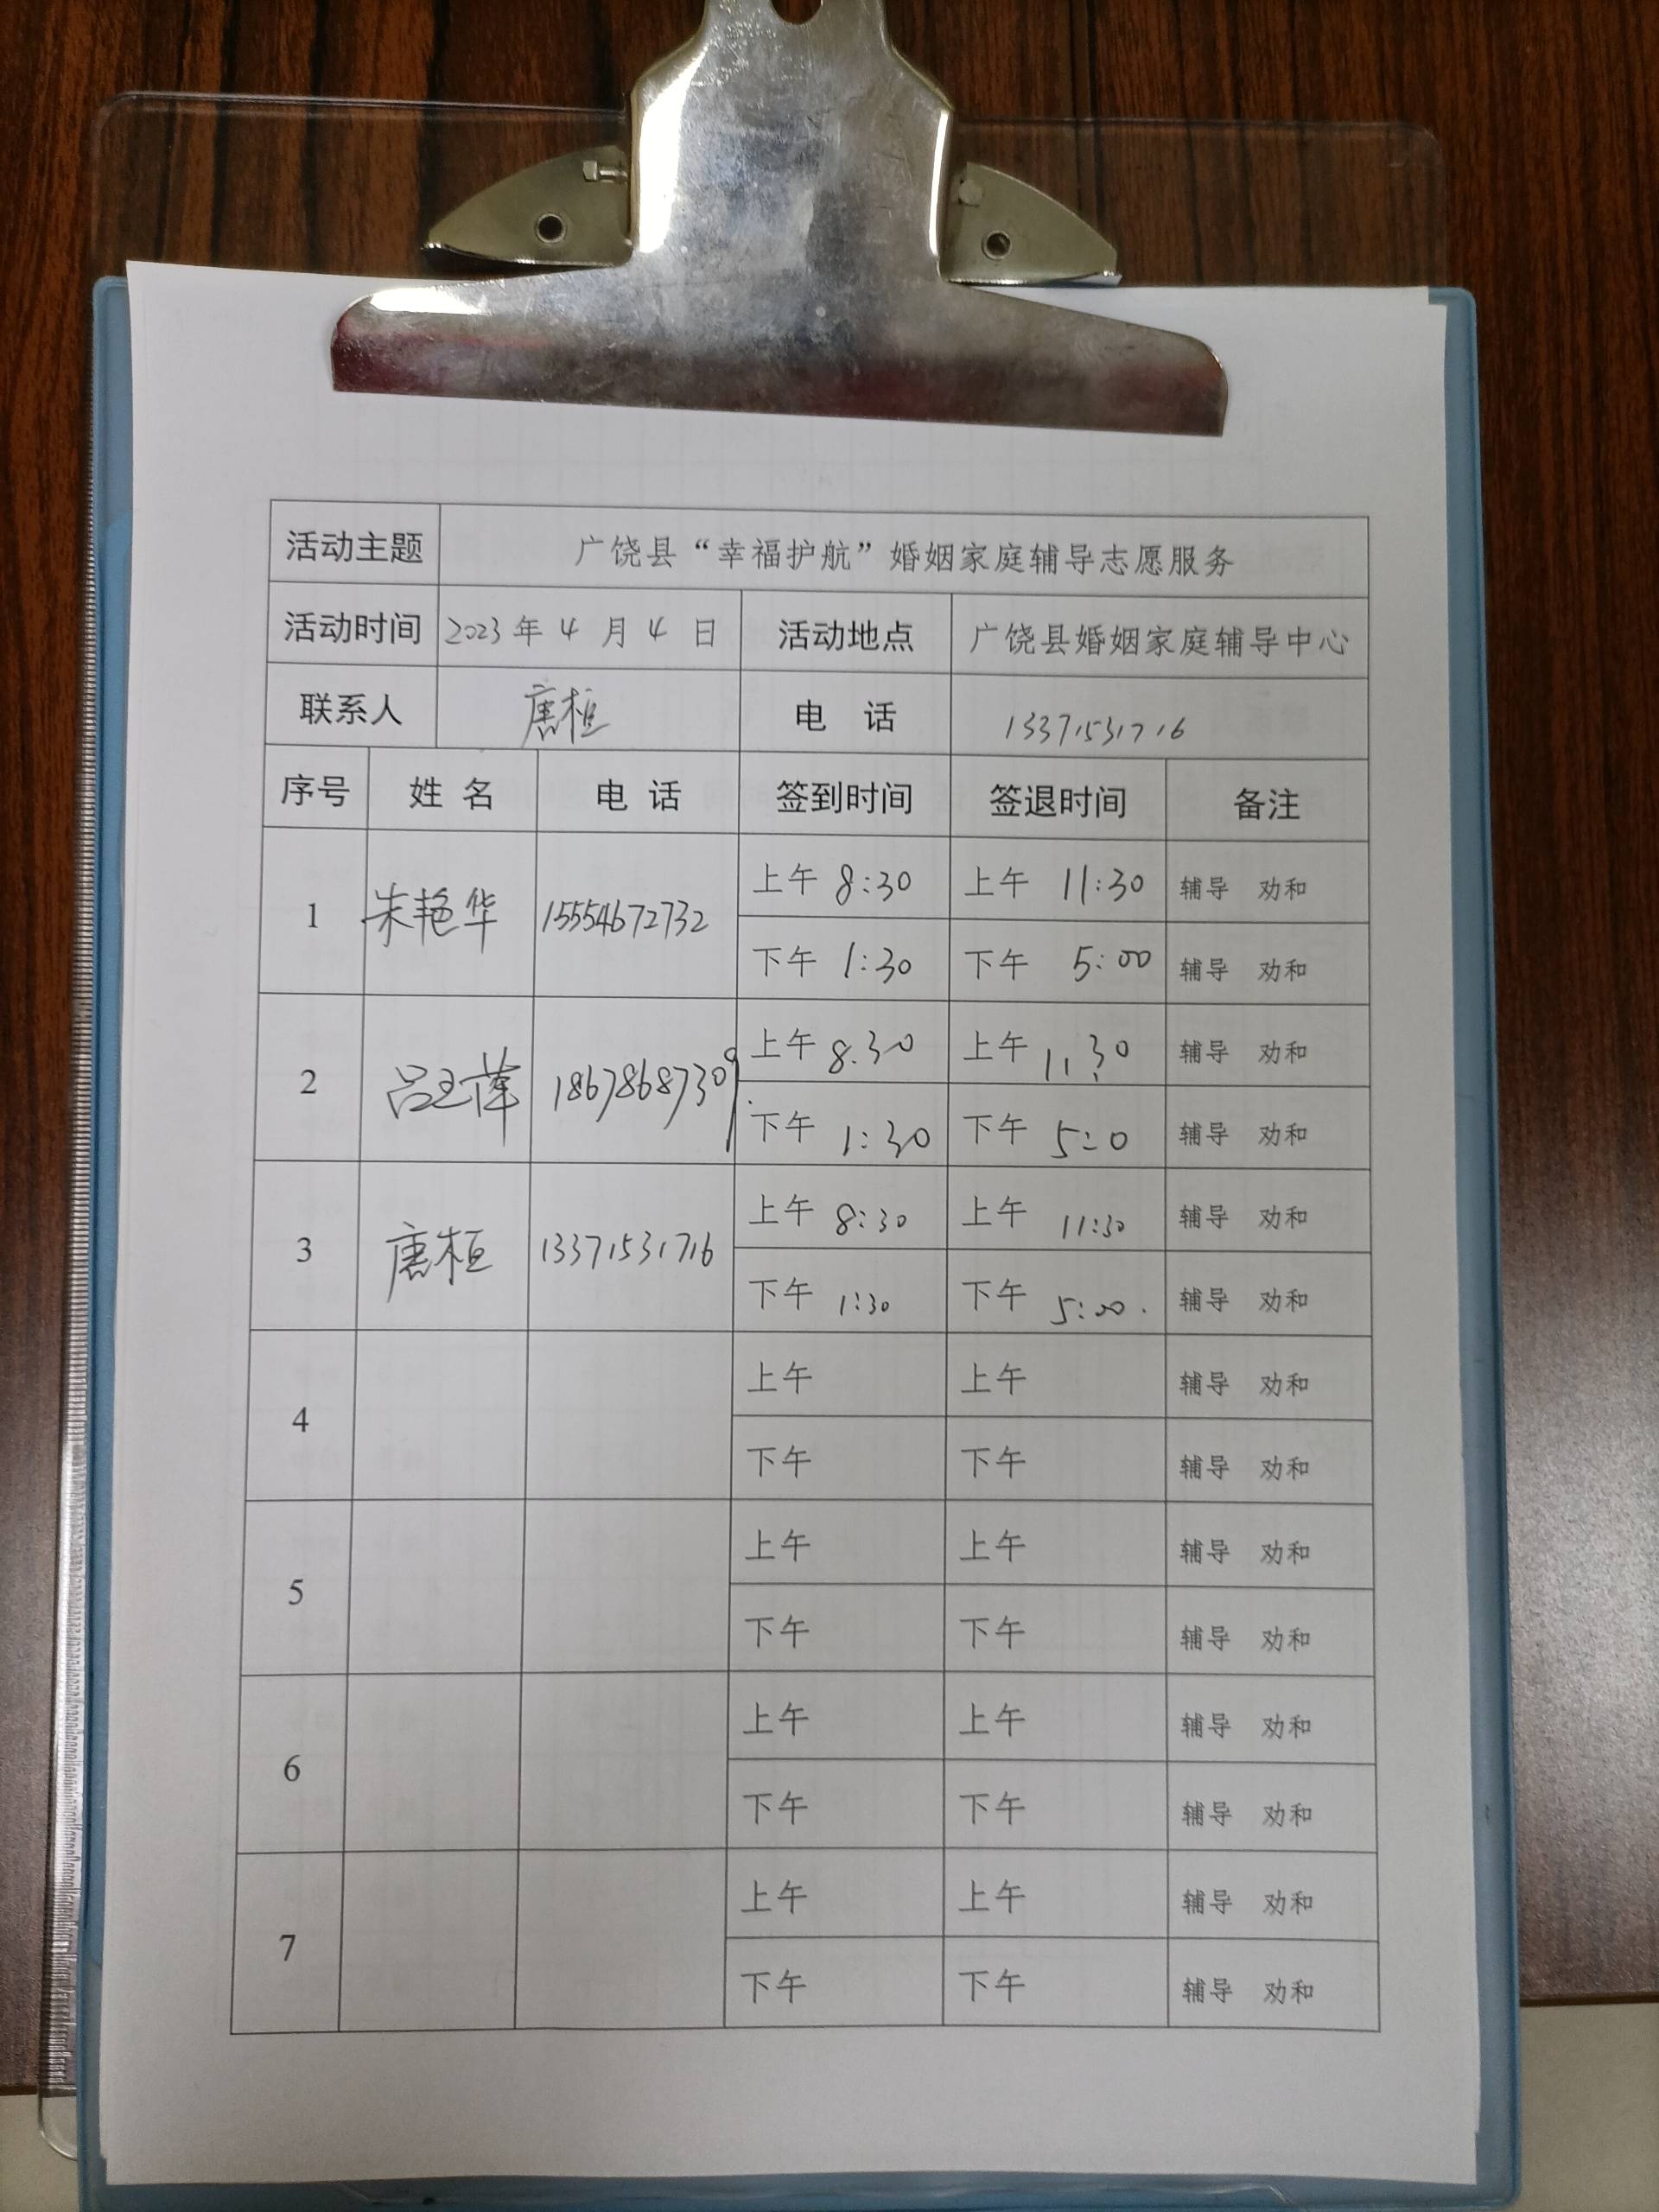 活动主题 广饶县“幸福护航”婚姻家庭辅导志愿服务
活动时间 2023年 4 月 4 日 活动地点 广饶县婚姻家庭辅导中心
联系人 唐桓 电 话 13371531716
序号 姓 名 电 话 签到时间 签退时间 备注
上午 8:30 上午 11:30 辅导 劝和
1 朱艳华 15554672732
下午 1:30 下午 5:00 辅导 劝和
上午 8.30 上午 11:30 辅导 劝和
2 吕玉萍 18678687309
下午 1:30 下午 5:0 辅导 劝和
上午 8:30 上午 11:30 辅导 劝和
3 唐桓 13371531716
下午 1:30 下午 5:00. 辅导 劝和
上午 上午 辅导 劝和
4
下午 下午 辅导 劝和
上午 上午 辅导 劝和
5
下午 下午 辅导 劝和
上午 上午 辅导 劝和
6
下午 下午 辅导 劝和
上午 上午 辅导 劝和
7
下午 下午 辅导 劝和